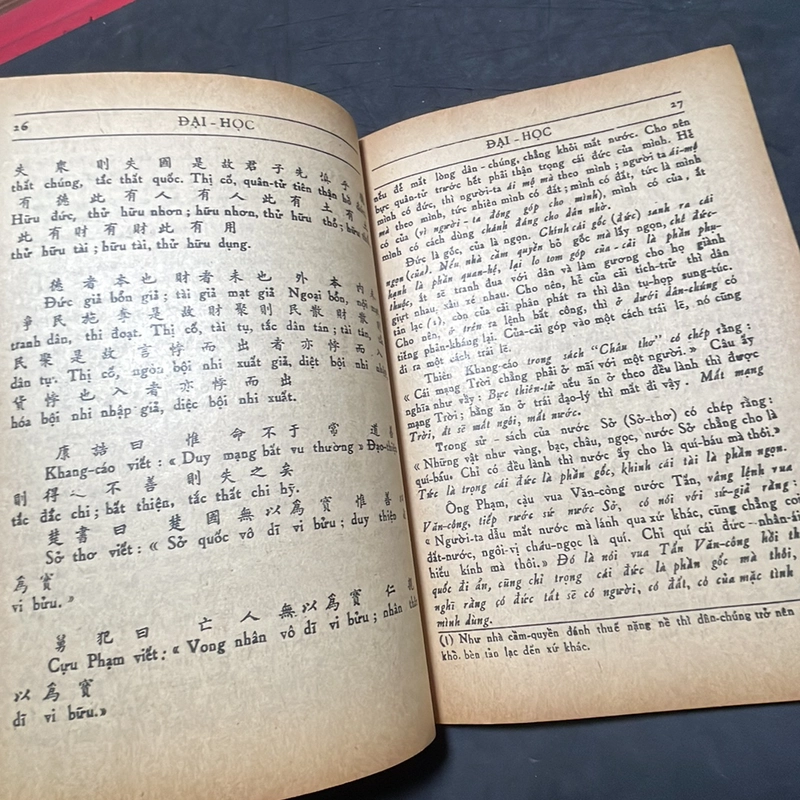 26
ĐẠI - HỌC
失 衆 則 失 國 是 故 君 子 先
thất chúng, tắc thất quốc. Thị cố, quân-tử tiên thận
有 德 此 有 人 有 人 此 有 土 有
Hữu đức, thử hữu nhơn; hữu nhơn, thử hữu thổ; hữu
此 有 財 有 財 此 有 用
thử hữu tài; hữu tài, thử hữu dụng.
德 者 本 也 財 者 末 也 外 本 内
Đức giả bổn giã; tài giả mạt giã Ngoại bổn, nội
爭 民 施 奪 是 故 財 聚 則 民 散 財 散
tranh dân, thi đoạt. Thị cố, tài tụ, tắc dân tán; tài tán,
民 聚 是 故 言 悖 而 出 者 亦 悖 而 入
dân tụ. Thị cố, ngôn bội nhi xuất giả, diệt bội nhi
貨 悖 也 入 者 亦 悖 而 出
hóa bội nhi nhập giả, diệc bội nhi xuất.
康 誥 曰 惟 命 不 于 常 道 善
Khang-cáo viết: « Duy mạng bất vu thường » Đạo
則 得 之 不 善 則 失 之 矣
tắc đắc chi; bất thiện, tắc thất chi hỹ.
楚 書 曰 楚 國 無 以 為 寶 惟 善
Sở thơ viết: « Sở quốc vô dĩ vi bửu; duy thiện
為 寶
vi bửu. »
舅 犯 曰 亡 人 無 以 為 寶 仁
Cựu Phạm viết: « Vong nhân vô dĩ vi bửu; nhân
以 為 寶
dĩ vi bữu.»
ĐẠI - HỌC
27
nếu để mất lòng dân-chúng, chẳng khỏi mất nước. Cho nên
bực quân-tử trước hết phải thận trọng cái đức của mình. Hễ
mình có đức, thì người-ta ái mộ mà theo mình; người ta ái-mộ
mà theo mình, tức nhiên mình có đất; mình có đất, tức là mình
có của (vì người-ta đóng góp cho mình), mình có của, ắt
mình có cách dùng chánh đáng cho dân nhờ.
Đức là gốc, của là ngọn. Chính cái gốc (đức) sanh ra cái
ngọn (của). Nếu nhà cầm quyền bỏ gốc mà lấy ngọn, chê đức-
hạnh là phần quan-hệ, lại lo tom góp của-cải là phần phụ-
thuộc, ắt sẽ tranh đua với dân và làm gương cho họ giành
giựt nhau, xâu xé nhau. Cho nên, hễ của cải tích-trữ thì dân
tản lạc (1), còn của cải phân phát ra thì dân tụ-hợp sung-túc.
Cho nên, ở trên ra lệnh bất công, thì ở dưới dân-chúng có
tiếng phản-kháng lại. Của-cải góp vào một cách trái lẽ, nó cũng
đi ra một cách trái lẽ.
Thiên Khang-cáo trong sách “Châu thơ” có chép rằng:
« Cái mạng Trời chẳng phải ở mãi với một người. » Câu ấy
nghĩa như vầy: Bực thiên-tử nếu ăn ở theo đều lành thì được
mạng Trời; bằng ăn ở trái đạo-lý thì mất đi vậy. Mất mạng
Trời, ắt sẽ mất ngôi, mất nước.
Trong sử - sách của nước Sở (Sở-thơ) có chép rằng:
« Những vật như vàng, bạc, châu, ngọc, nước Sở chẳng cho là
quí-báu. Chỉ có đều lành thì nước ấy cho là quí-báu mà thôi.»
Tức là trọng cái đức là phần gốc, khinh cái tài là phần ngọn.
Ông Phạm, cậu vua Văn-công nước Tấn, vâng lệnh vua
Văn-công, tiếp rước sứ nước Sở, có nói với sứ-giả rằng:
« Người-ta dẫu mất nước mà lánh qua xứ khác, cũng chẳng coi
đất-nước, ngôi-vị châu-ngọc là quí. Chỉ quí cái đức nhân-ái
hiếu kính mà thôi.» Đó là nói vua Tấn Văn-công hồi
quốc đi ẩn, cũng chỉ trọng cái đức là phần gốc mà thôi,
nghĩ rằng có đức tất sẽ có người, có đất, có của mặc tình
mình dùng.
(1) Như nhà cầm-quyền đánh thuế nặng nề thì dân-chúng trở nên
khổ, bèn tản lạc đến xứ khác.